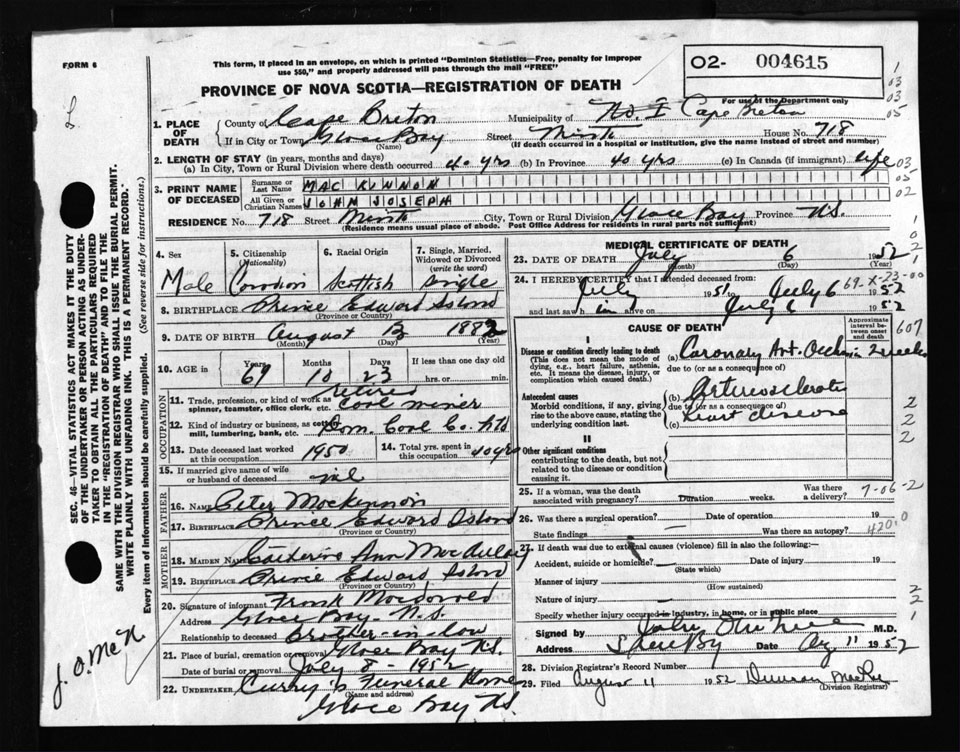 FORM 6
This form, if placed in an envelope, on which is printed "Dominion Statistics—Free, penalty for improper
use $50," and properly addressed will pass through the mail "FREE"
O2- 004615
For use of the Department only
PROVINCE OF NOVA SCOTIA—REGISTRATION OF DEATH
1. PLACE OF DEATH
County of Cape Breton Municipality of No. I Cape Breton
If in City or Town Glace Bay Street Minto House No. 718
(Name) (If death occurred in a hospital or institution, give name instead of street and number)
2. LENGTH OF STAY (in years, months and days)
(a) In City, Town or Rural Division where death occurred 40 yrs (b) In Province 40 yrs (c) In Canada (if immigrant) life
3. PRINT NAME OF DECEASED
Surname or Last Name MAC KINNON
All Given or Christian Names JOHN JOSEPH
RESIDENCE No. 718 Street Minto City, Town or Rural Division Glace Bay Province N.S.
(Residence means usual place of abode. Post Office Address for residents in rural parts not sufficient)
4. Sex
Male
5. Citizenship
(Nationality)
Canadian
6. Racial Origin
Scottish
7. Single, Married, Widowed or Divorced
(write the word)
single
8. BIRTHPLACE Prince Edward Island
(Province or Country)
9. DATE OF BIRTH August 13 1882
(Month) (Day) (Year)
10. AGE in
Years 69 Months 10 Days 23
If less than one day
hrs. or min.
OCCUPATION
11. Trade, profession, or kind of work as spinner, teamster, office clerk, etc. retired Coal miner
12. Kind of industry or business, as cotton mill, lumbering, bank, etc. Dom. Coal Co. Ltd
13. Date deceased last worked at this occupation 1950
14. Total yrs. spent in this occupation 40 yrs
15. If married give name of wife or husband of deceased nil
FATHER
16. NAME Peter Mackinnon
17. BIRTHPLACE Prince Edward Island
(Province or Country)
MOTHER
18. MAIDEN NAME Catherine Ann MacAulay
19. BIRTHPLACE Prince Edward Island
(Province or Country)
20. Signature of informant Frank Macdonald
Address Glace Bay N.S.
Relationship to deceased brother-in-law
21. Place of burial, cremation or removal Glace Bay N.S.
Date of burial or removal July 8 - 1952
22. UNDERTAKER Curry's Funeral Home
(Name and address)
Glace Bay N.S.
MEDICAL CERTIFICATE OF DEATH
23. DATE OF DEATH July 6 1952
(Month) (Day) (Year)
24. I HEREBY CERTIFY that I attended deceased from:
July 1951 July 6 1952
and last saw h im alive on July 6 1952
69-X-23-00
CAUSE OF DEATH
Approximate interval between onset and death
607
I
Disease or condition directly leading to death
(This does not mean the mode of dying, e.g., heart failure, asthenia, etc. It means the disease, injury, or complication which caused death.)
(a) Coronary Art. Occlusion 2 weeks
due to (or as a consequence of)
Antecedent causes
Morbid conditions, if any, giving rise to the above cause, stating the underlying condition last.
(b) Arteriosclerotic
due to (or as a consequence of)
heart disease
(c)
II
Other significant conditions
contributing to the death, but not related to the disease or condition causing it.
25. If a woman, was the death associated with pregnancy? Duration weeks. Was there a delivery?
7-06-2
26. Was there a surgical operation? Date of operation 19
State findings Was there an autopsy?
4200
27. If death was due to external causes (violence) fill in also the following:—
Accident, suicide or homicide? Date of injury 19
(State which)
Manner of injury
(How sustained)
Nature of injury
Specify whether injury occurred in industry, in home, or in public place
Signed by M.D.
Address Date Aug 11 1952
28. Division Registrar's Record Number
29. Filed August 11 1952 Duncan MacRae
(Division Registrar)
SEC. 46—VITAL STATISTICS ACT MAKES IT THE DUTY
OF THE UNDERTAKER OR PERSON ACTING AS UNDER-
TAKER TO OBTAIN ALL THE PARTICULARS REQUIRED
IN THE "REGISTRATION OF DEATH" AND TO FILE THE
SAME WITH THE DIVISION REGISTRAR WHO SHALL ISSUE THE BURIAL PERMIT.
WRITE PLAINLY WITH UNFADING INK. THIS IS A PERMANENT RECORD.
Every item of Information should be carefully supplied. (See reverse side for instructions.)